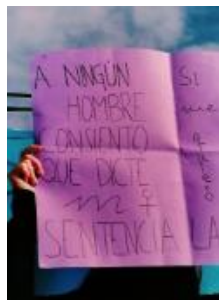 A NINGÚN
HOMBRE
CONSIENTO
QUE DICTE
SENTENCIA
SI
LA